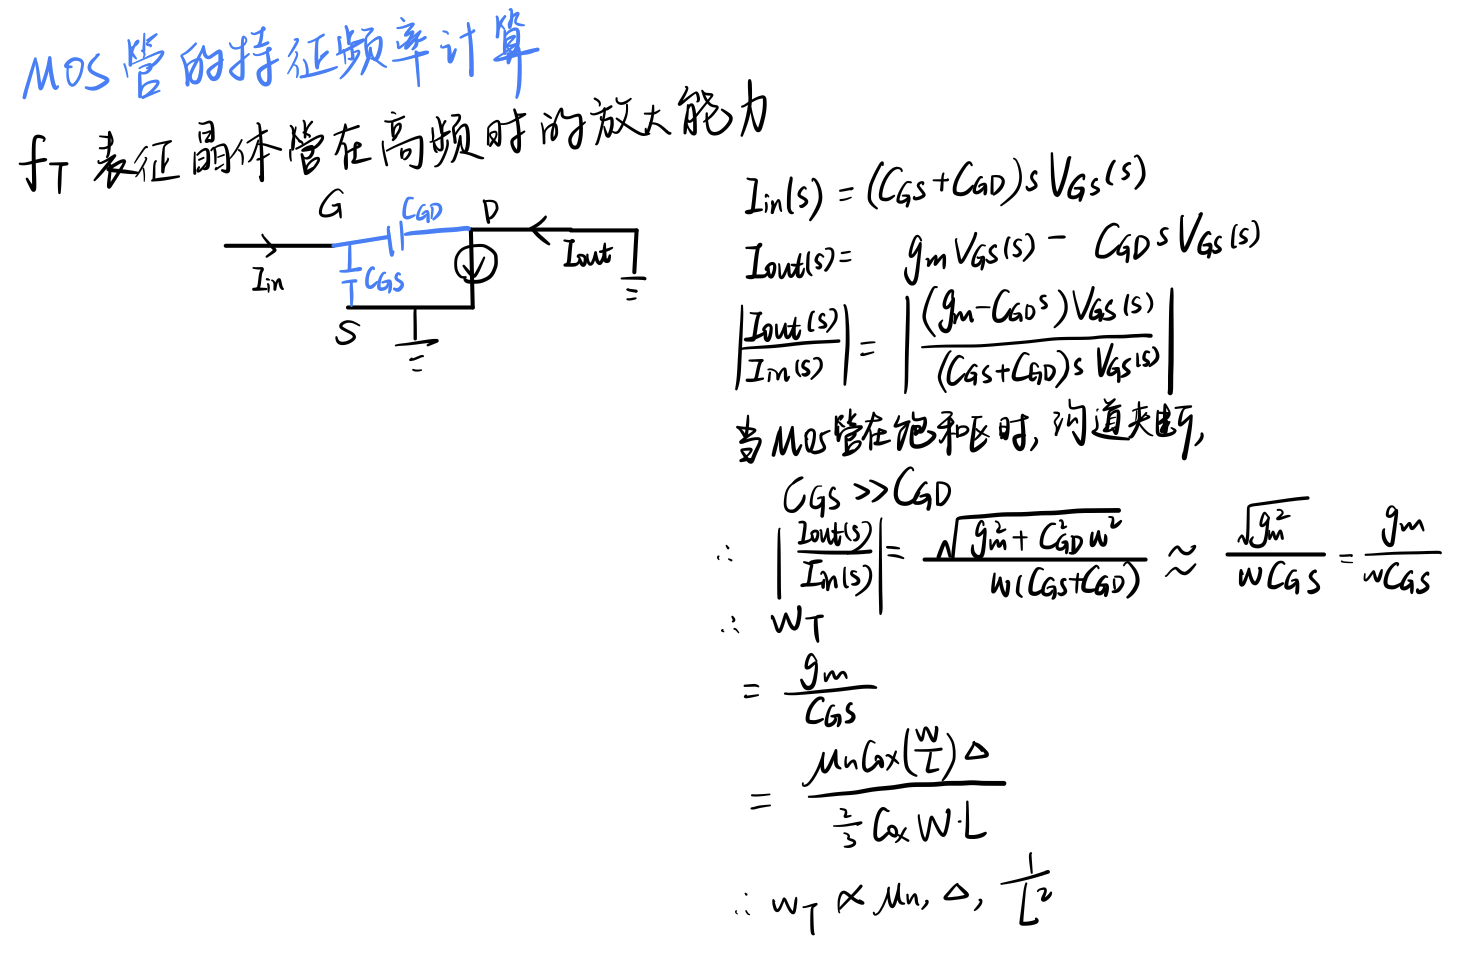 MOS管的特征频率计算
fT 表征晶体管在高频时的放大能力
G CGD D
Iin CGS Iout
S
Iin(s) = (CGS+CGD)s VGS(s)
Iout(s) = gm VGS(s) - CGD s VGS(s)
|Iout(s)/Iin(s)| = |(gm-CGD s)VGS(s)/(CGS+CGD)s VGS(s)|
当MOS管在饱和区时,沟道夹断,
CGS >> CGD
∴ |Iout(s)/Iin(s)| = √(gm²+CGD²w²)/w(CGS+CGD) ≈ √gm²/wCGS = gm/wCGS
∴ wT
= gm/CGS
= μnCox(W/L)Δ/(2/3 Cox W·L)
∴ wT ∝ μn, Δ, 1/L²